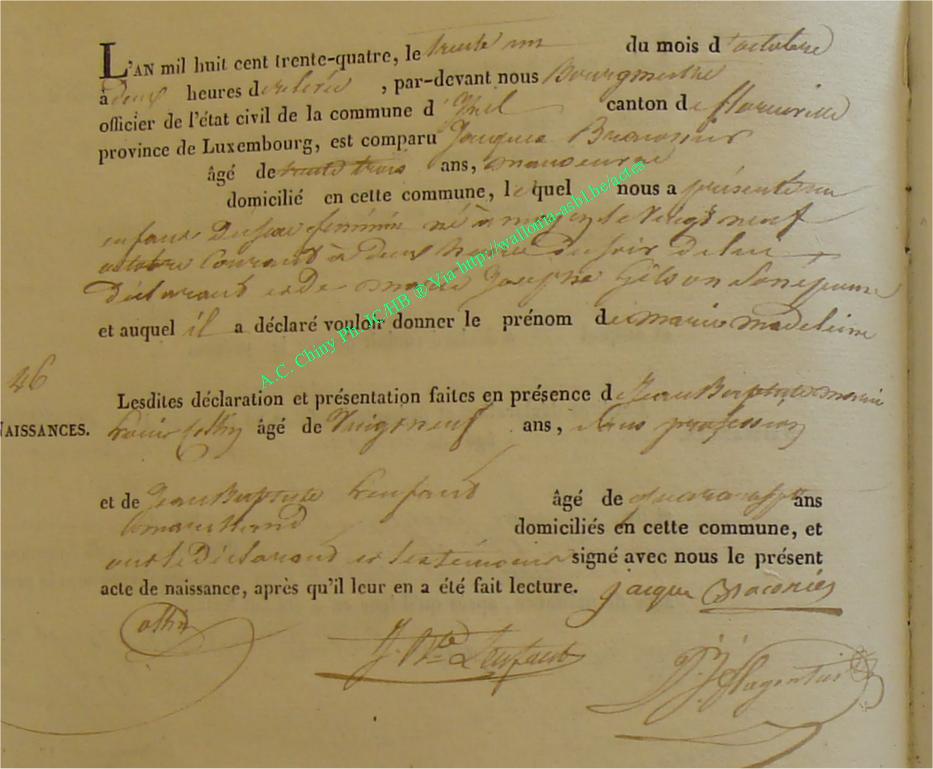 L'AN mil huit cent trente-quatre, le trente un du mois d'octobre
à deux heures de relevée, par-devant nous Bourgmestre
officier de l'état civil de la commune d' Izel canton de florenville
province de Luxembourg, est comparu Jacques
âgé de trente trois ans, manoeuvre
domicilié en cette commune, lequel nous a présenté un
enfant Du sexe féminin né à le Vingt neuf
octobre Courant à deux heures Du soir De lui
Déclarant et de marie Josephe Gilson Son épouse
et auquel il a déclaré vouloir donner le prénom de marie madeleine
46
Lesdites déclaration et présentation faites en présence de Jean Baptiste
NAISSANCES. Louis âgé de Vingt neuf ans, Sans profession
et de Jean Baptiste Lenfant âgé de ans
marchand domiciliés en cette commune, et
ont le Déclarant et les témoins signé avec nous le présent
acte de naissance, après qu'il leur en a été fait lecture. Jacque
J. Bte Lenfant
A.C. Chiny Ph.JC/HB ® Via http://wallonia-asbl.be/actes